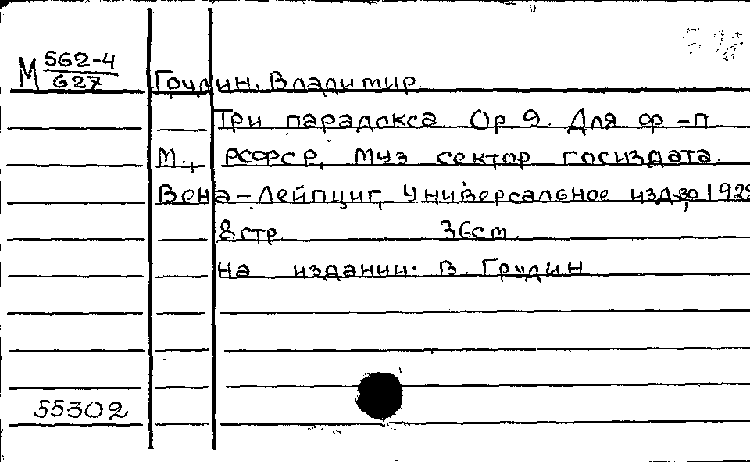 М 562-4
627
Грудин. Владимир
Три парадокса Op 9. Для ф-п
М., РСФСР, Муз сектор госиздата.
Вена-Лейпциг, Универсальное изд-во, 192
8 стр 36 cm
на издании: В. Грудин
55302